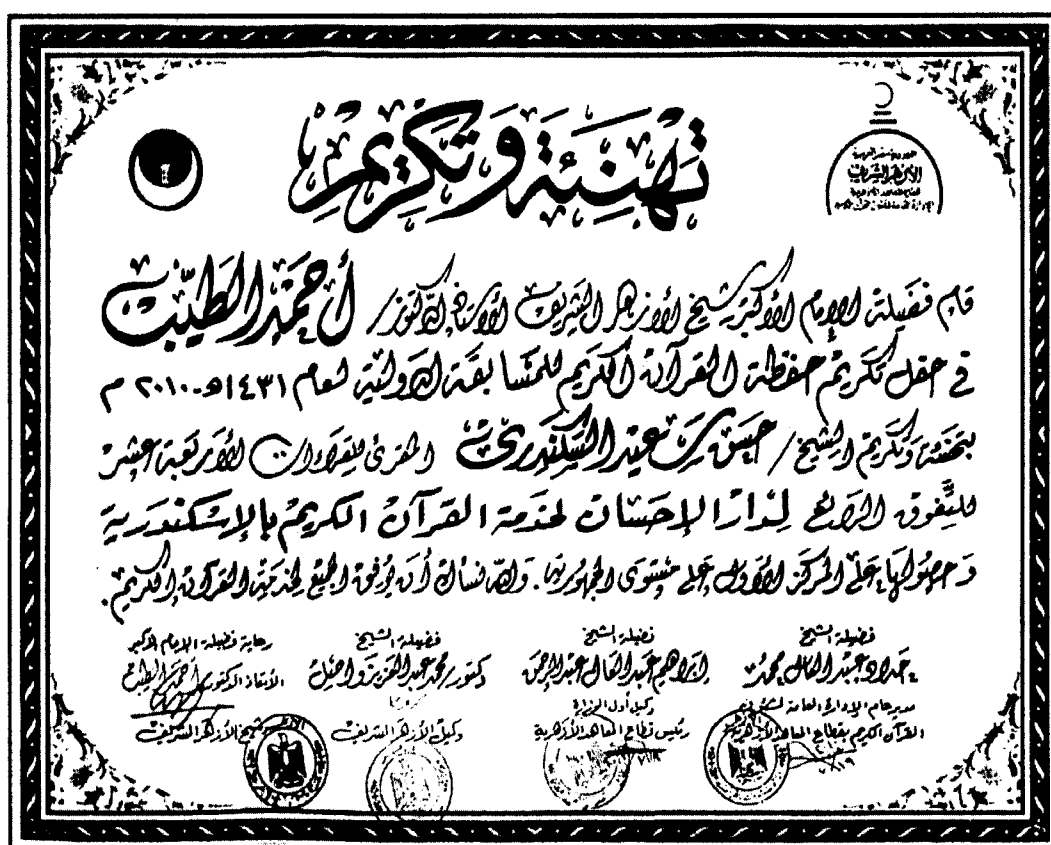 تهنئة وتكريم
جمهورية مصر العربية
الأزهر الشريف
قام فضيلة الإمام الأكبر شيخ الأزهر الشريف الأستاذ الدكتور/ أحمد الطيب
في حفل تكريم حفظة القرآن الكريم للمسابقة الدولية لعام ١٤٣١هـ-٢٠١٠ م
بتهنئة وتكريم الشيخ/ عيد السكندري المقرئ للقراءات الأربعة عشر
للتفوق الرائع لدار الإحسان لخدمة القرآن الكريم بالإسكندرية
وحصولها على المركز الأول على مستوى الجمهورية. والله نسأل أن يوفق الجميع لخدمة القرآن الكريم.
فضيلة الشيخ
عبد العال محمد
مدير عام الإدارة العامة لشئون
القرآن الكريم بقطاع المعاهد الأزهرية
فضيلة الشيخ
إبراهيم عبد العال عبد الرحمن
وكيل أول الوزارة
رئيس قطاع المعاهد الأزهرية
فضيلة الشيخ
دكتور/ محمد عبد العزيز واصل
وكيل الأزهر الشريف
رعاية فضيلة الإمام الأكبر
الأستاذ الدكتور/ أحمد الطيب
شيخ الأزهر الشريف